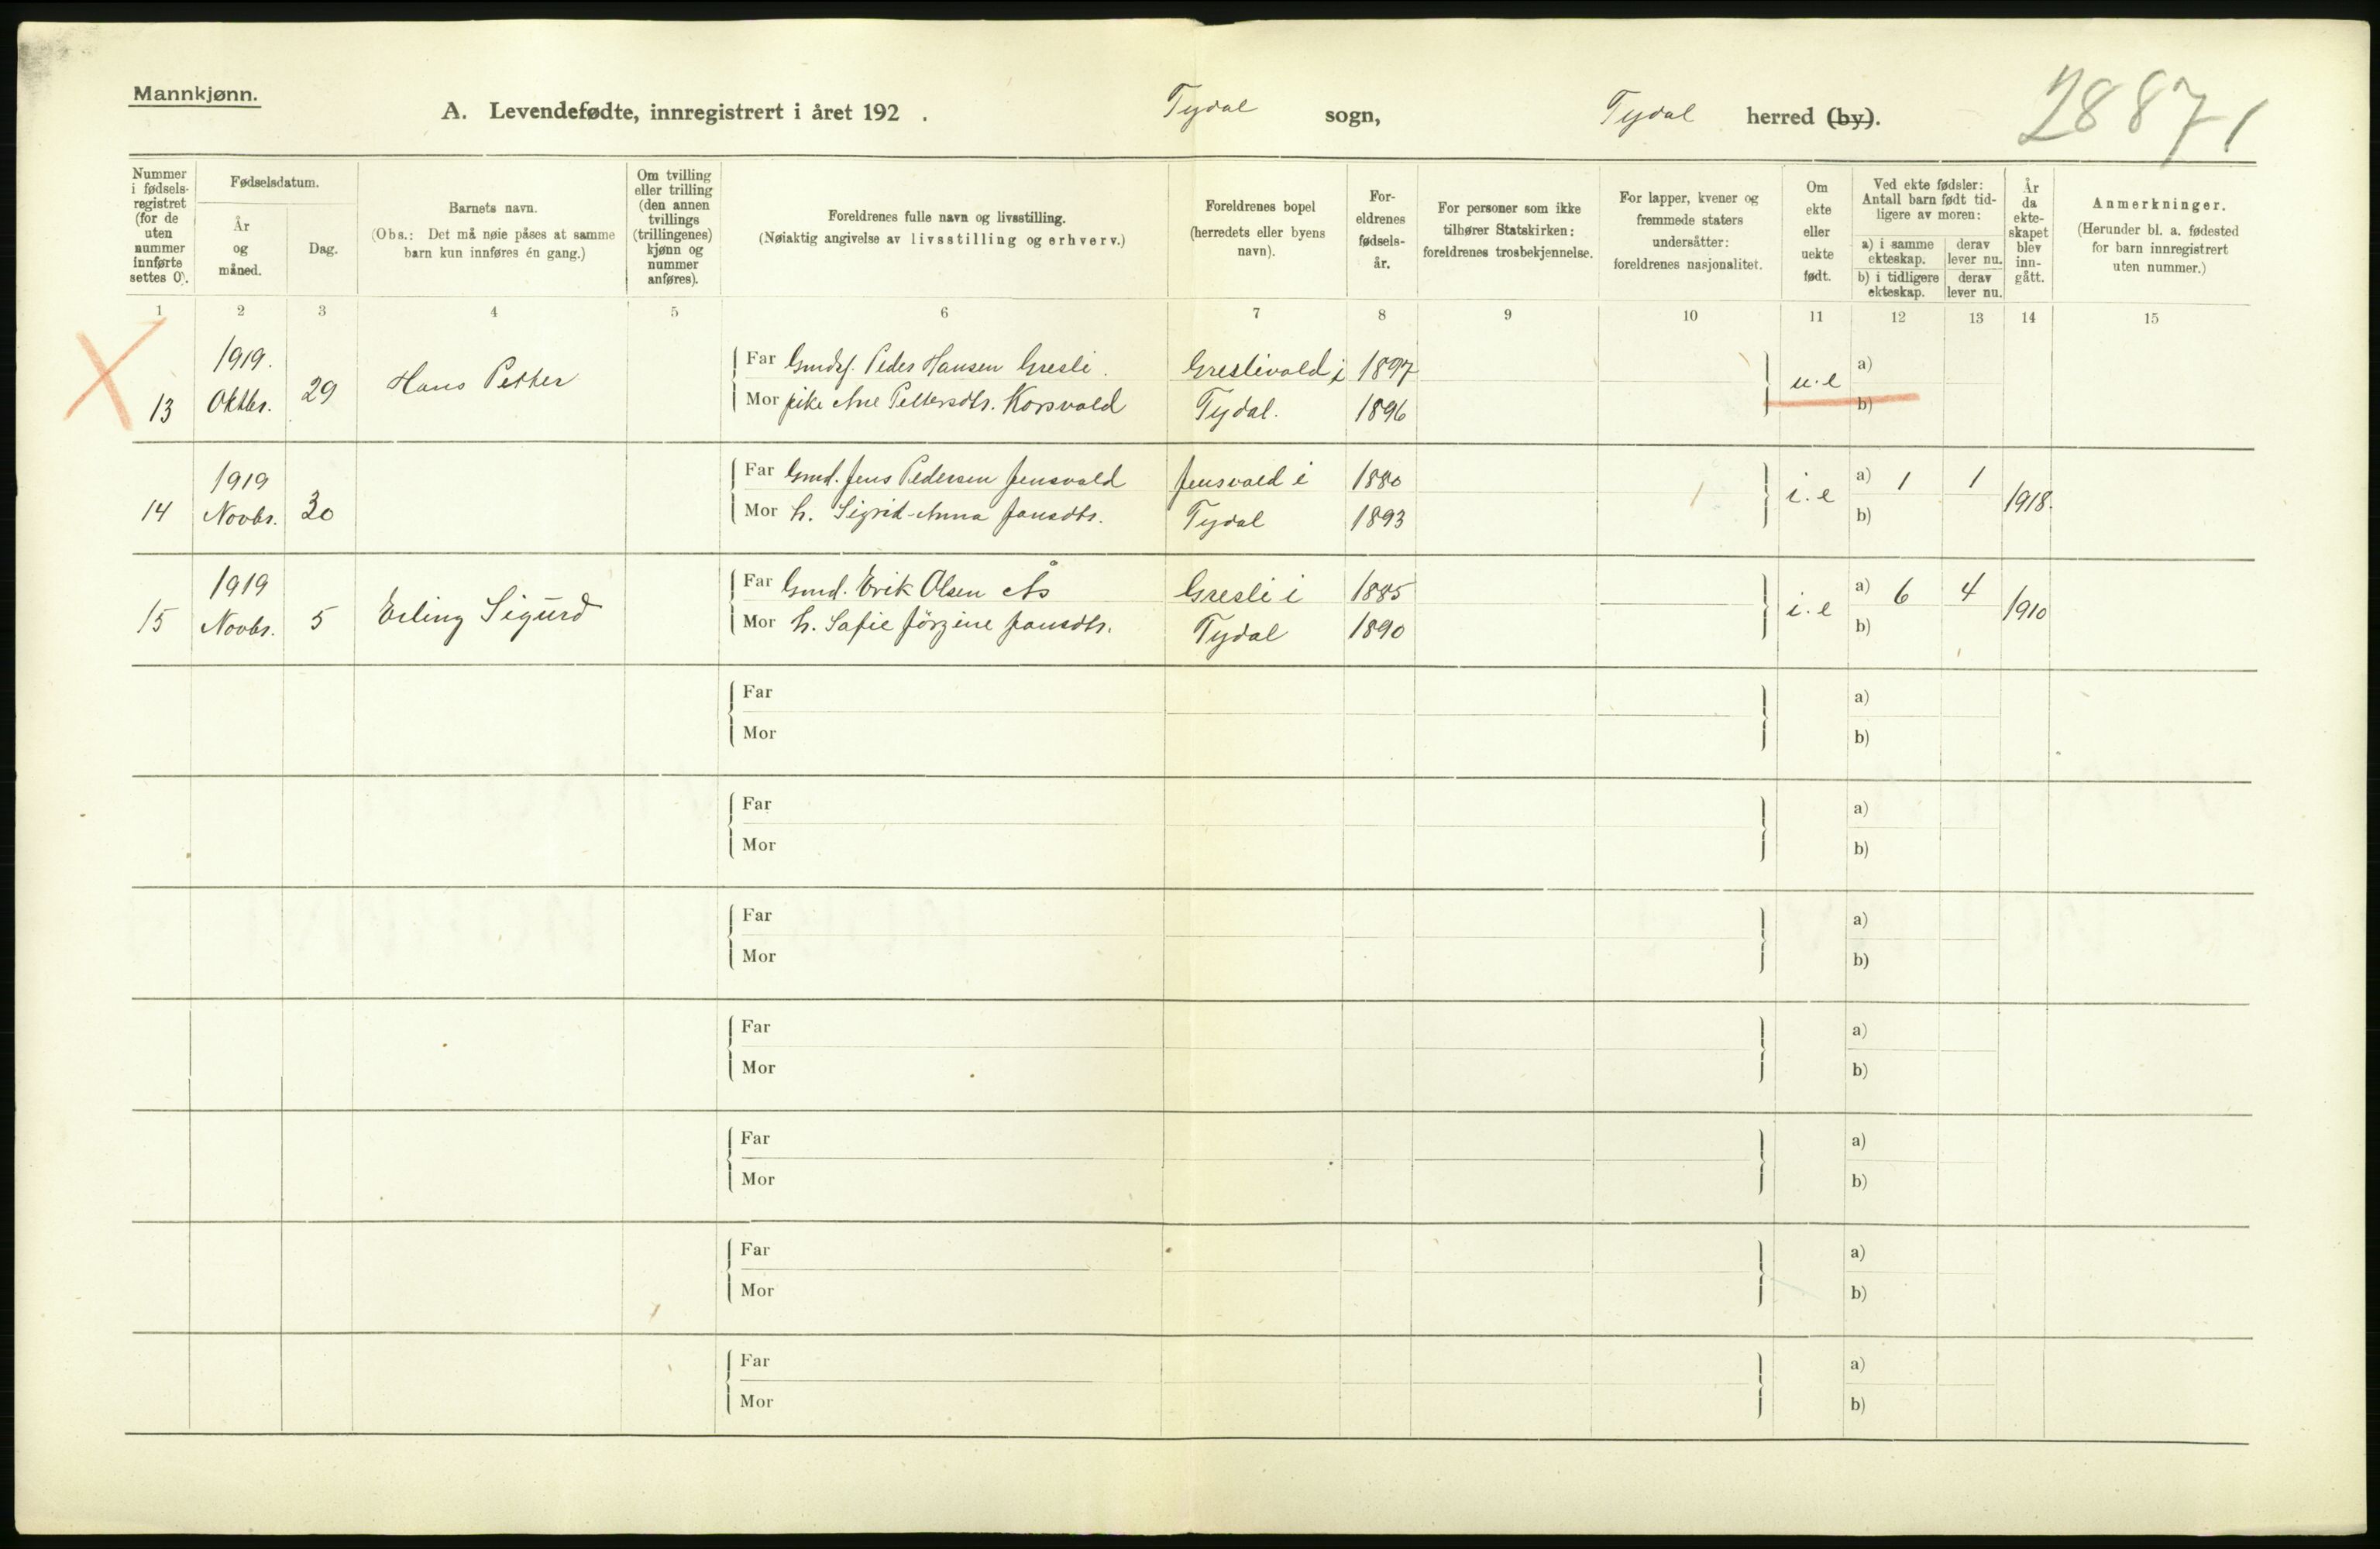 Mannkjønn.
A. Levendefødte, innregistrert i året 192 . Tydal sogn, Tydal herred (by).
28871
Nummer i fødselsregistret (for de uten nummer innførte settes 0).
Fødselsdatum.
År og måned.
Dag.
Barnets navn.
(Obs.: Det må nøie påses at samme barn kun innføres én gang.)
Om tvilling eller trilling (den annen tvillings (trillingenes) kjønn og nummer anføres).
Foreldrenes fulle navn og livsstilling.
(Nøiaktig angivelse av livsstilling og erhverv.)
Foreldrenes bopel (herredets eller byens navn).
Foreldrenes fødselsår.
For personer som ikke tilhører Statskirken: foreldrenes trosbekjennelse.
For lapper, kvener og fremmede staters undersåtter: foreldrenes nasjonalitet.
Om ekte eller uekte født.
Ved ekte fødsler: Antall barn født tidligere av moren:
a) i samme ekteskap. derav lever nu.
b) i tidligere ekteskap. derav lever nu.
År da ekteskapet blev inngått.
Anmerkninger.
(Herunder bl. a. fødested for barn innregistrert uten nummer.)
1 2 3 4 5 6 7 8 9 10 11 12 13 14 15
1919. Far Gmds. Peder Hansen Gresli. Greslivold i 1897 a)
13 Oktbr. 29 Hans Petter u.e
Mor pike Ane Pettersdtr. Korsvold Tydal. 1896 b)
1919 Far Gmd. Jens Pedersen Jensvold Jensvold i 1880 a) 1 1
14 Novbr. 30 i.e 1918.
Mor h. Sigrid-Anna Jansdtr. Tydal 1893 b)
1919 Far Gmd. Erik Olsen Ås Gresli i 1885 a) 6 4
15 Novbr. 5 Erling Sigurd i.e 1910
Mor h. Safie Jörgine Jansdtr. Tydal 1890 b)
Far a)
Mor b)
Far a)
Mor b)
Far a)
Mor b)
Far a)
Mor b)
Far a)
Mor b)
Far a)
Mor b)
Far a)
Mor b)